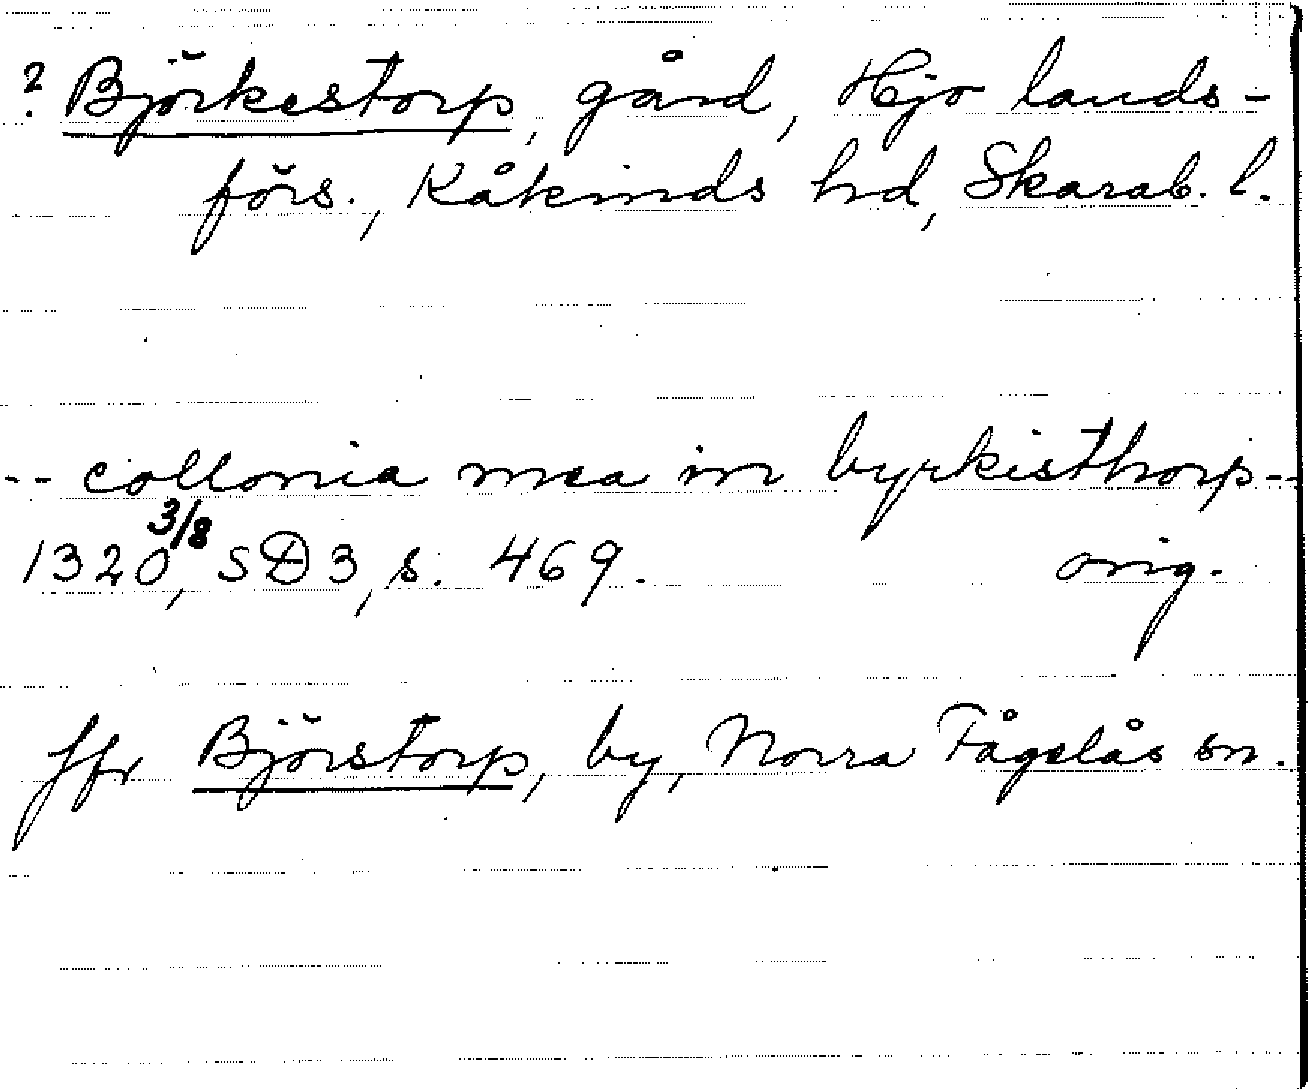 ? Björkestorp, gård, Hjo lands-
förs., Kåkinds hd, Skarab. l.
-- collonia mea in byrkisthorp--
1320 3/8, SD3, s. 469. orig.
Jfr Björstorp, by, Norra Fågelås sn.